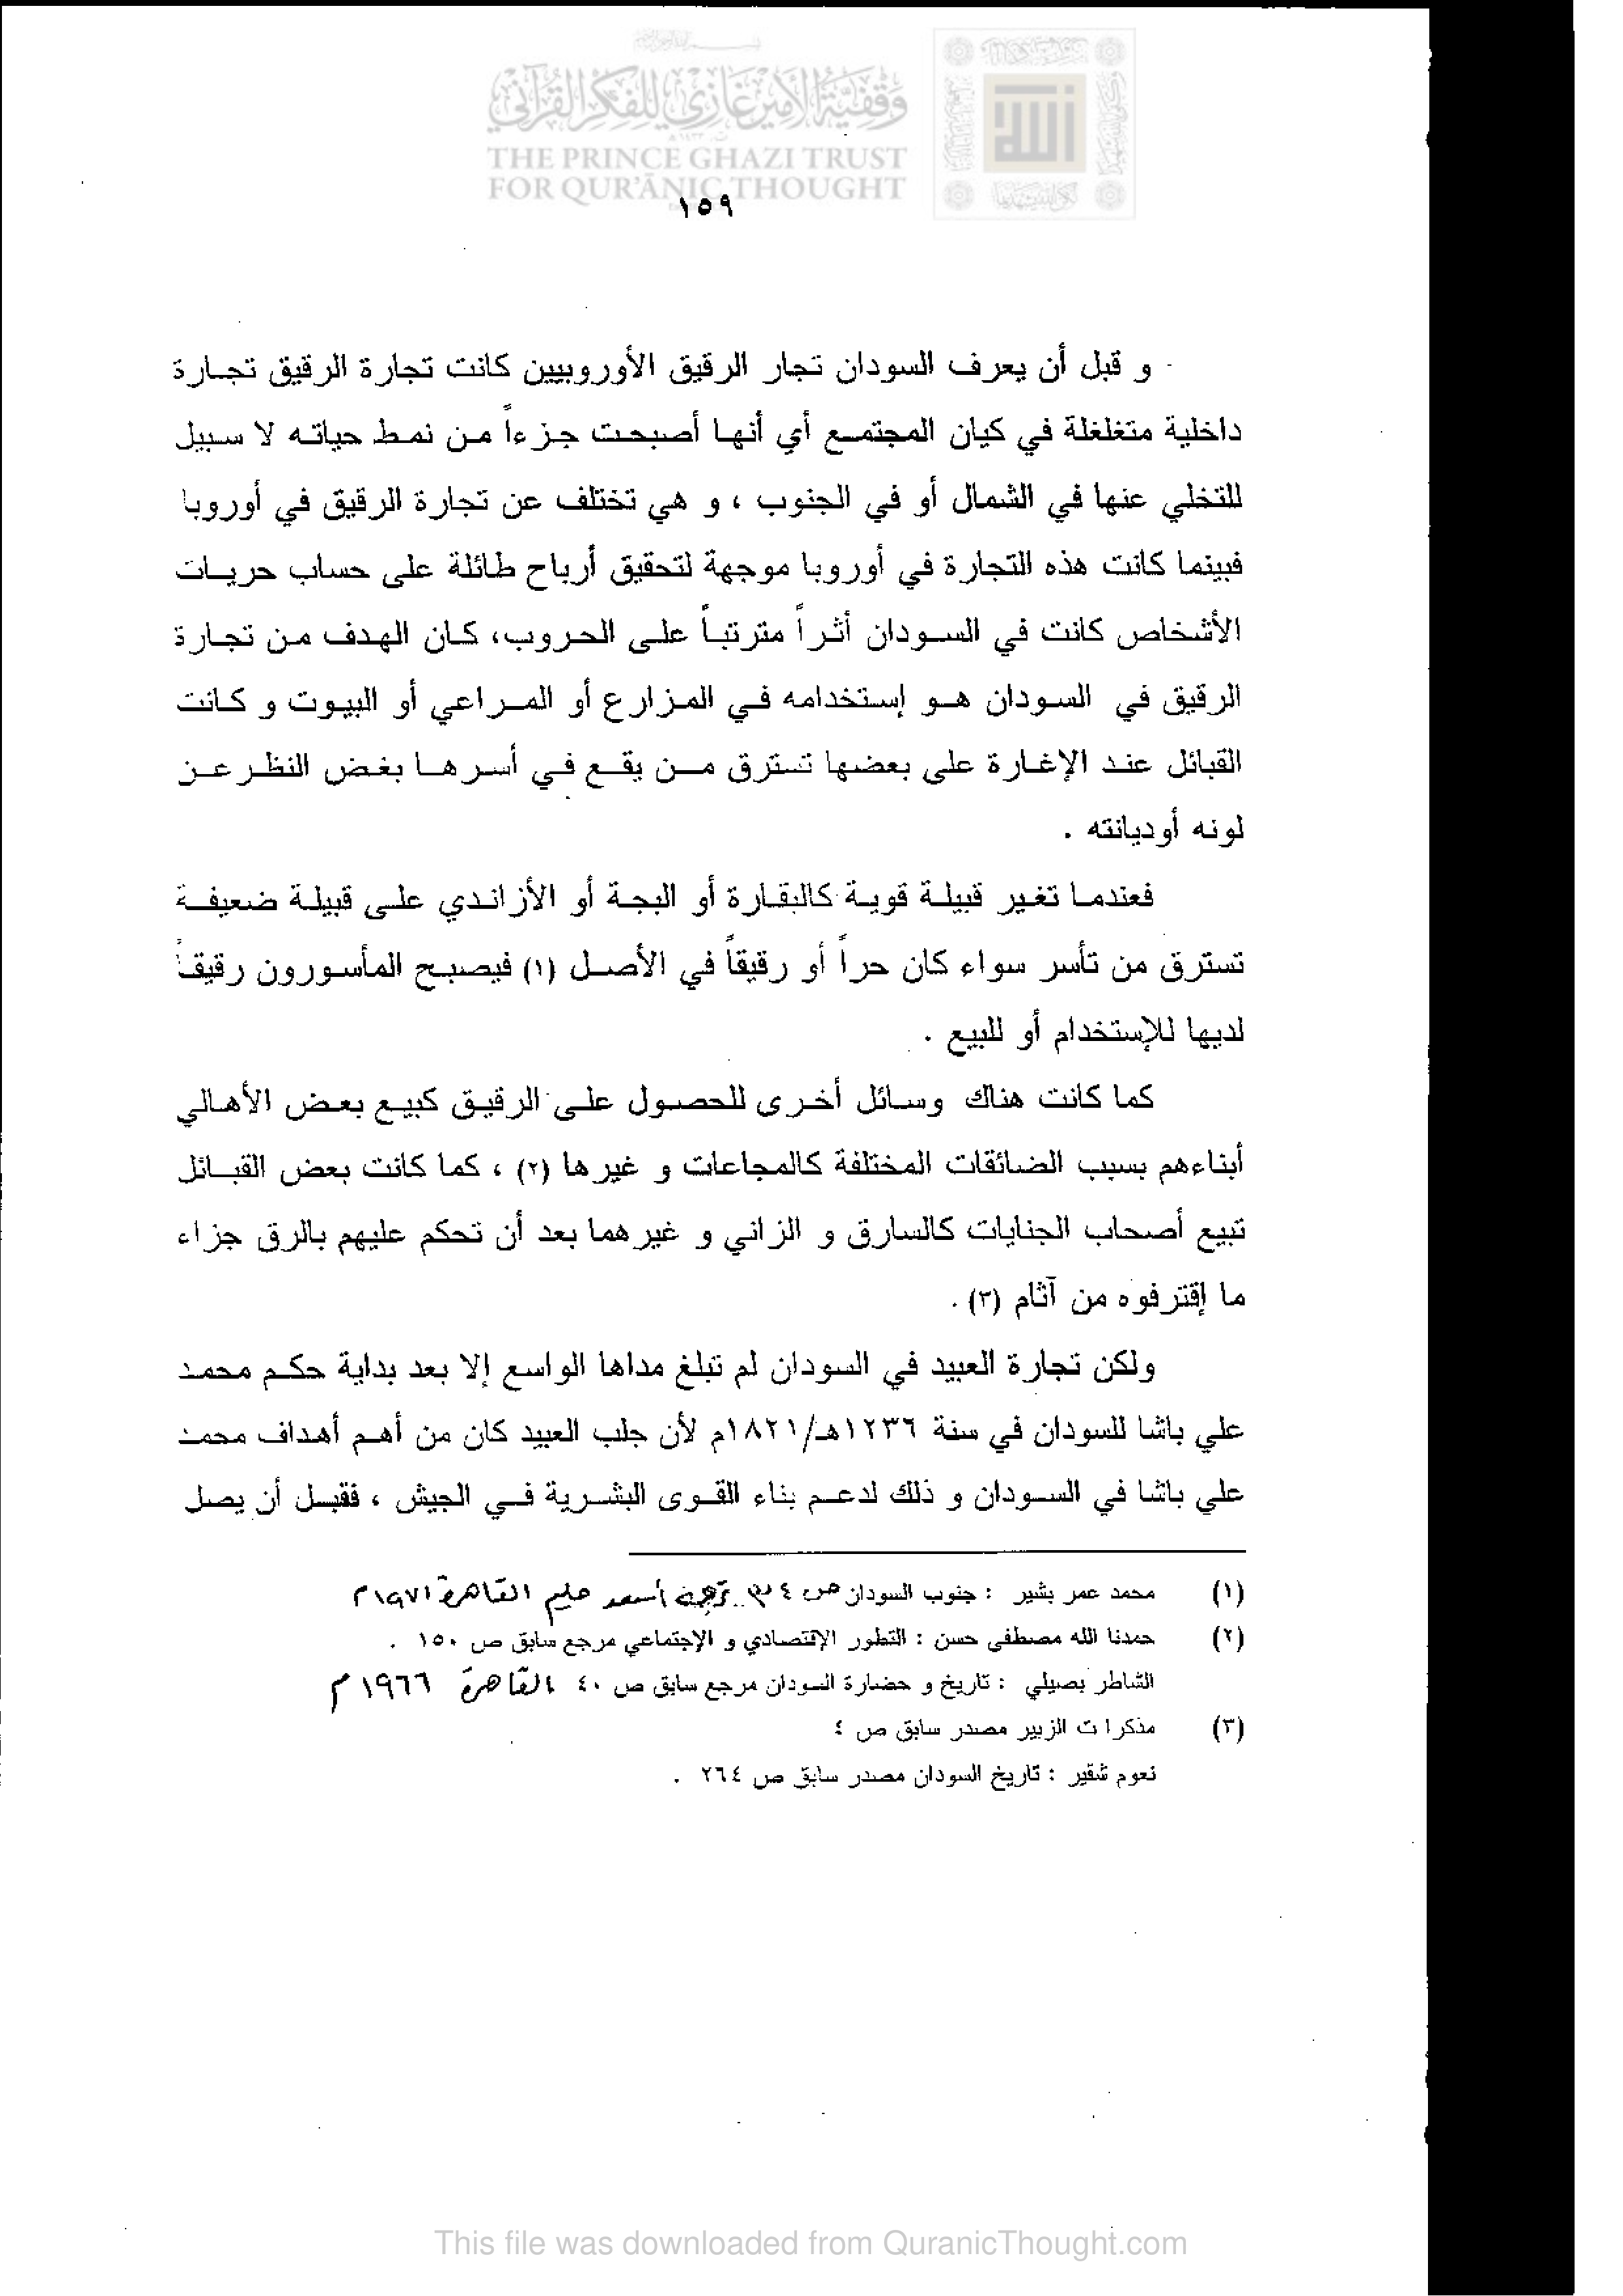 وقفية الأمير غازي للفكر القرآني
THE PRINCE GHAZI TRUST
FOR QUR'ĀNIC THOUGHT
١٥٩
و قبل أن يعرف السودان تجار الرقيق الأوروبيين كانت تجارة الرقيق تجارة
داخلية متغلغلة في كيان المجتمع أي أنها أصبحت جزءاً من نمط حياته لا سبيل
للتخلي عنها في الشمال أو في الجنوب ، و هي تختلف عن تجارة الرقيق في أوروبا
فبينما كانت هذه التجارة في أوروبا موجهة لتحقيق أرباح طائلة على حساب حريات
الأشخاص كانت في السودان أثراً مترتباً على الحروب، كان الهدف من تجارة
الرقيق في السودان هو إستخدامه في المزارع أو المراعي أو البيوت و كانت
القبائل عند الإغارة على بعضها تسترق من يقع في أسرها بغض النظر عن
لونه أوديانته .
فعندما تغير قبيلة قوية كالبقارة أو البجة أو الأزاندي على قبيلة ضعيفة
تسترق من تأسر سواء كان حراً أو رقيقاً في الأصل (١) فيصبح المأسورون رقيقاً
لديها للإستخدام أو للبيع .
كما كانت هناك وسائل أخرى للحصول على الرقيق كبيع بعض الأهالي
أبناءهم بسبب الضائقات المختلفة كالمجاعات و غيرها (٢) ، كما كانت بعض القبائل
تبيع أصحاب الجنايات كالسارق و الزاني و غيرهما بعد أن تحكم عليهم بالرق جزاء
ما إقترفوه من آثام (٣) .
ولكن تجارة العبيد في السودان لم تبلغ مداها الواسع إلا بعد بداية حكم محمد
علي باشا للسودان في سنة ١٢٣٦هـ/١٨٢١م لأن جلب العبيد كان من أهم أهداف محمد
علي باشا في السودان و ذلك لدعم بناء القوى البشرية في الجيش ، فقبل أن يصل
(١) محمد عمر بشير : جنوب السودان ص ترجمة أسعد حليم القاهرة ١٩٧١م
(٢) حمدنا الله مصطفى حسن : التطور الإقتصادي و الإجتماعي مرجع سابق ص ١٥٠ .
الشاطر بصيلي : تاريخ و حضارة السودان مرجع سابق ص ٤٠ القاهرة ١٩٦٦م
(٣) مذكرات الزبير مصدر سابق ص ٤
نعوم شقير : تاريخ السودان مصدر سابق ص ٢٦٤ .
This file was downloaded from QuranicThought.com